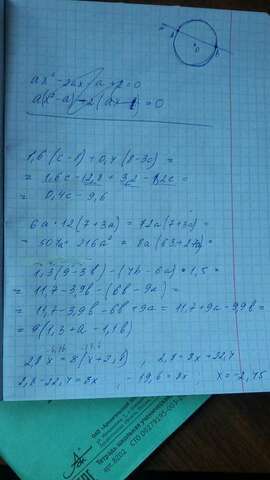 ax² - 2ax / a + 2 = 0
a(x² - a) - 2(ax - 1) = 0
1,6(c - 8) + 0,4(8 - 3c) =
= 1,6c - 12,8 + 3,2 - 1,2c =
= 0,4c - 9,6
6a · 12(7 + 3a) = 72a(7 + 3a) =
= 504a + 216a² = 8a(63 + 27a) =
1,3(9 - 3b) - (4b - 6a) · 1,5 =
= 11,7 - 3,9b - (6b - 9a) =
= 11,7 - 3,9b - 6b + 9a = 11,7 + 9a - 9,9b =
= 9(1,3 + a - 1,1b)
2,8 = 8x + 22,4
2,8 - 22,4 = 8x , -19,6 = 8x , x = -2,45
Тетрадь школьная ученическая
арт.8202 СТО